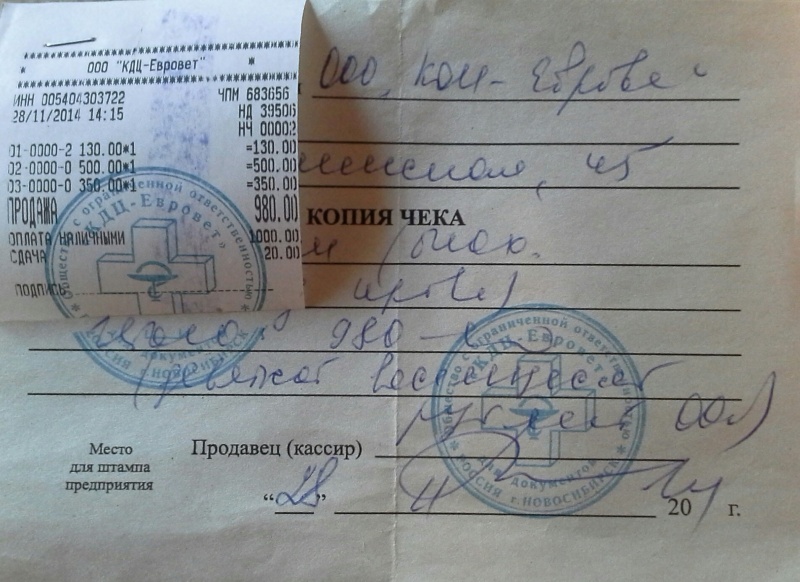 ООО "КДЦ-Евровет"
ИНН 005404303722 ЧПМ 683656
28/11/2014 14:15 НД 39506
НЧ 00002
01-0000-2 130.00*1 =130.00
02-0000-0 500.00*1 =500.00
03-0000-0 350.00*1 =350.00
ПРОДАЖА 980.00
ОПЛАТА НАЛИЧНЫМИ 1000.00
СДАЧА 20.00
ПОДПИСЬ
Общество с ограниченной ответственностью
"КДЦ-Евровет"
для документов
РОССИЯ г. НОВОСИБИРСК
ООО, КДЦ-Еврове
45
КОПИЯ ЧЕКА
крови)
980
(девятьсот восемьдесят
рублей 00к)
Общество с ограниченной ответственностью
"КДЦ-Евровет"
для документов
РОССИЯ г. НОВОСИБИРСК
Место
для штампа
предприятия
Продавец (кассир)
"28" 11 2014 г.